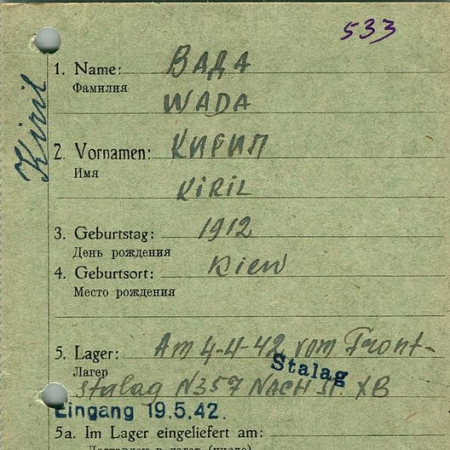 533
Kiril
1. Name: ВАДА
Фамилия
WADA
2. Vornamen: КИРИЛ
Имя
KIRIL
3. Geburtstag: 1912
День рождения
4. Geburtsort: Kiew
Место рождения
5. Lager: Am 4-4-42 vom Front-
Лагер
stalag N357 NACH ST. XB
Stalag
Eingang 19.5.42.
5a. Im Lager eingeliefert am: